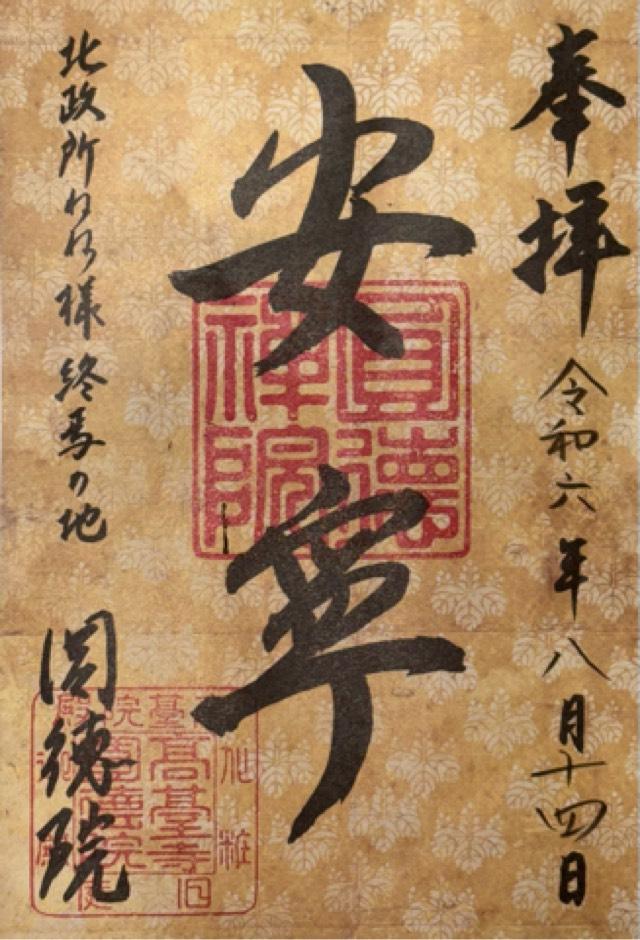 奉拝
令和六年八月十四日
安寧
圓德禅院
北政所ねね様終焉の地
圓徳院
高臺寺
圓德院